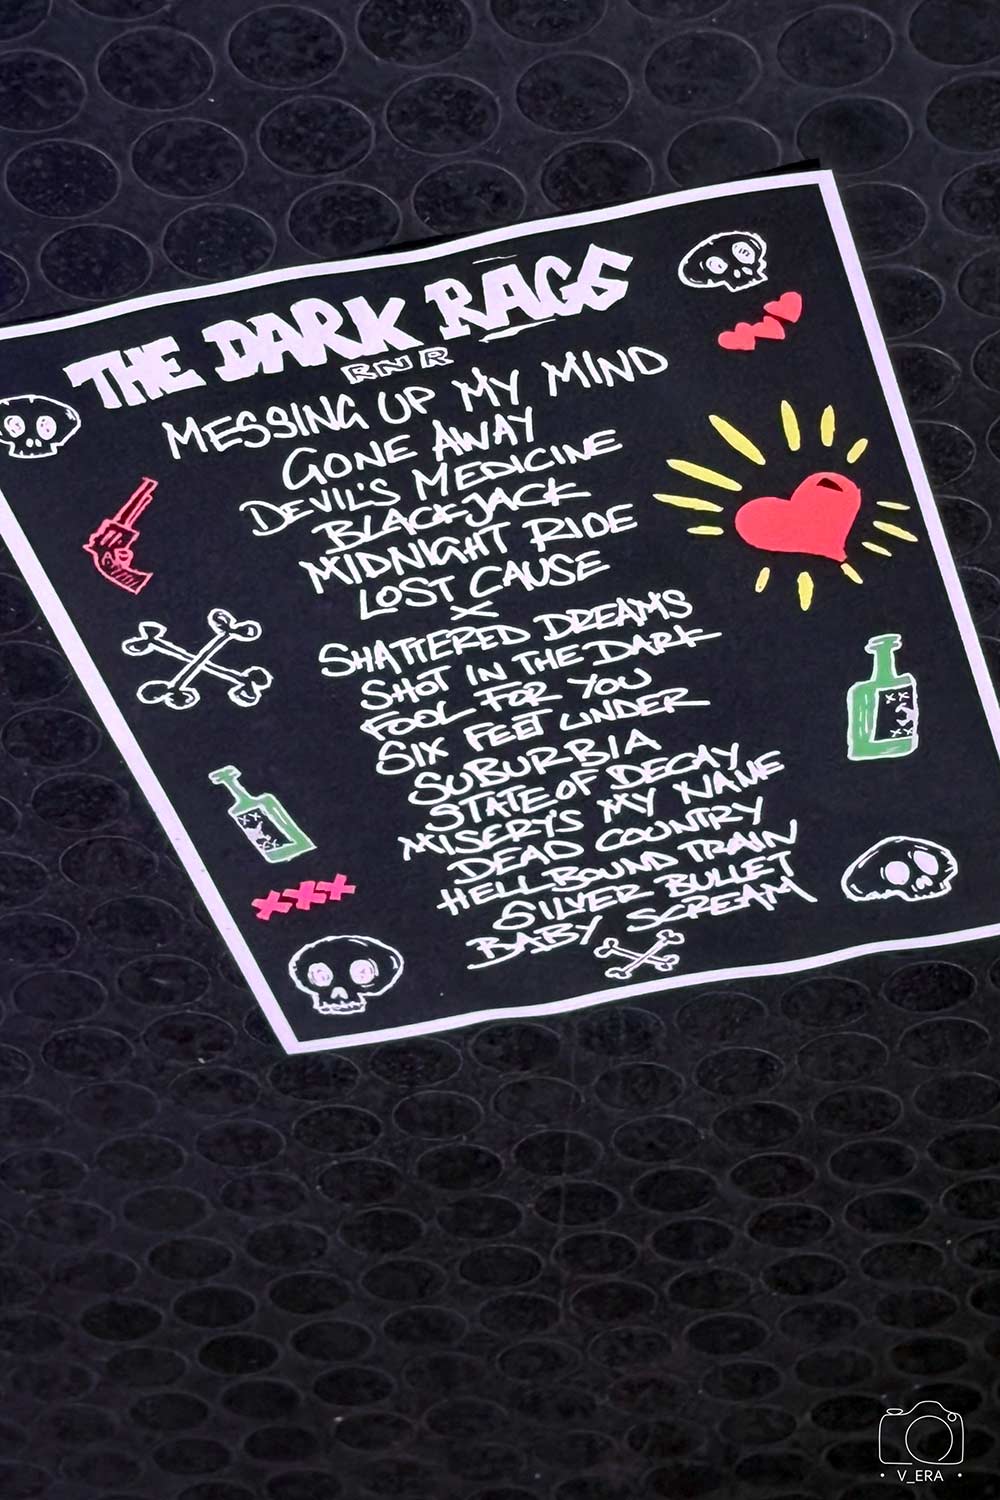 THE DARK RAGS
RNR
MESSING UP MY MIND
GONE AWAY
DEVIL'S MEDICINE
BLACKJACK
MIDNIGHT RIDE
LOST CAUSE
X
SHATTERED DREAMS
SHOT IN THE DARK
FOOL FOR YOU
SIX FEET UNDER
SUBURBIA
STATE OF DECAY
MISERY'S MY NAME
DEAD COUNTRY
HELLBOUND TRAIN
SILVER BULLET
BABY SCREAM
XXX
• V_ERA •